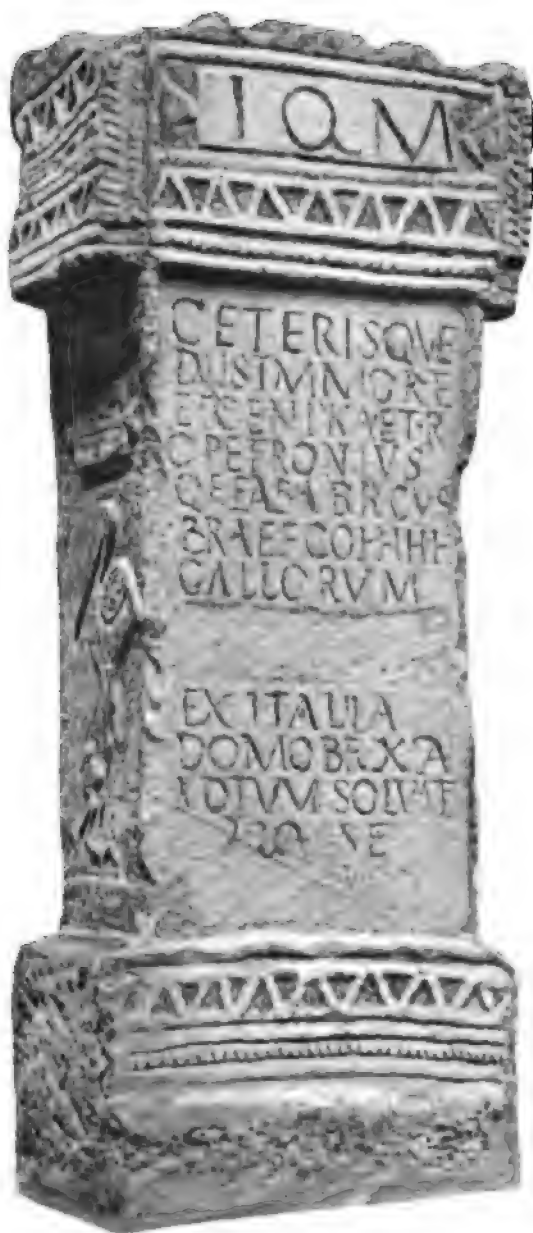 I Q M
CETERISQVE
DIIS IMMORT
ET GEN PRAETOR
Q PETRONIVS
Q F FAB VRBICVS
PRAEF COH IIII
GALLORVM
EX ITALIA
DOMO BRIXIA
VOTVM SOLVIT
PRO SE